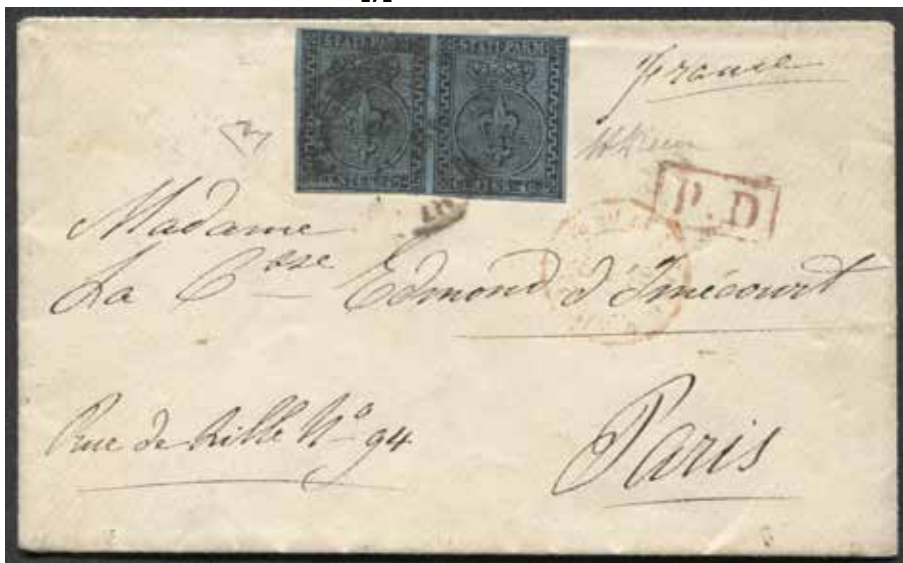 STATI PARM. STATI PARM.
France
P.D
Madame
La Csse Edmond d'Imécourt
Rue de Lille No 94
Paris